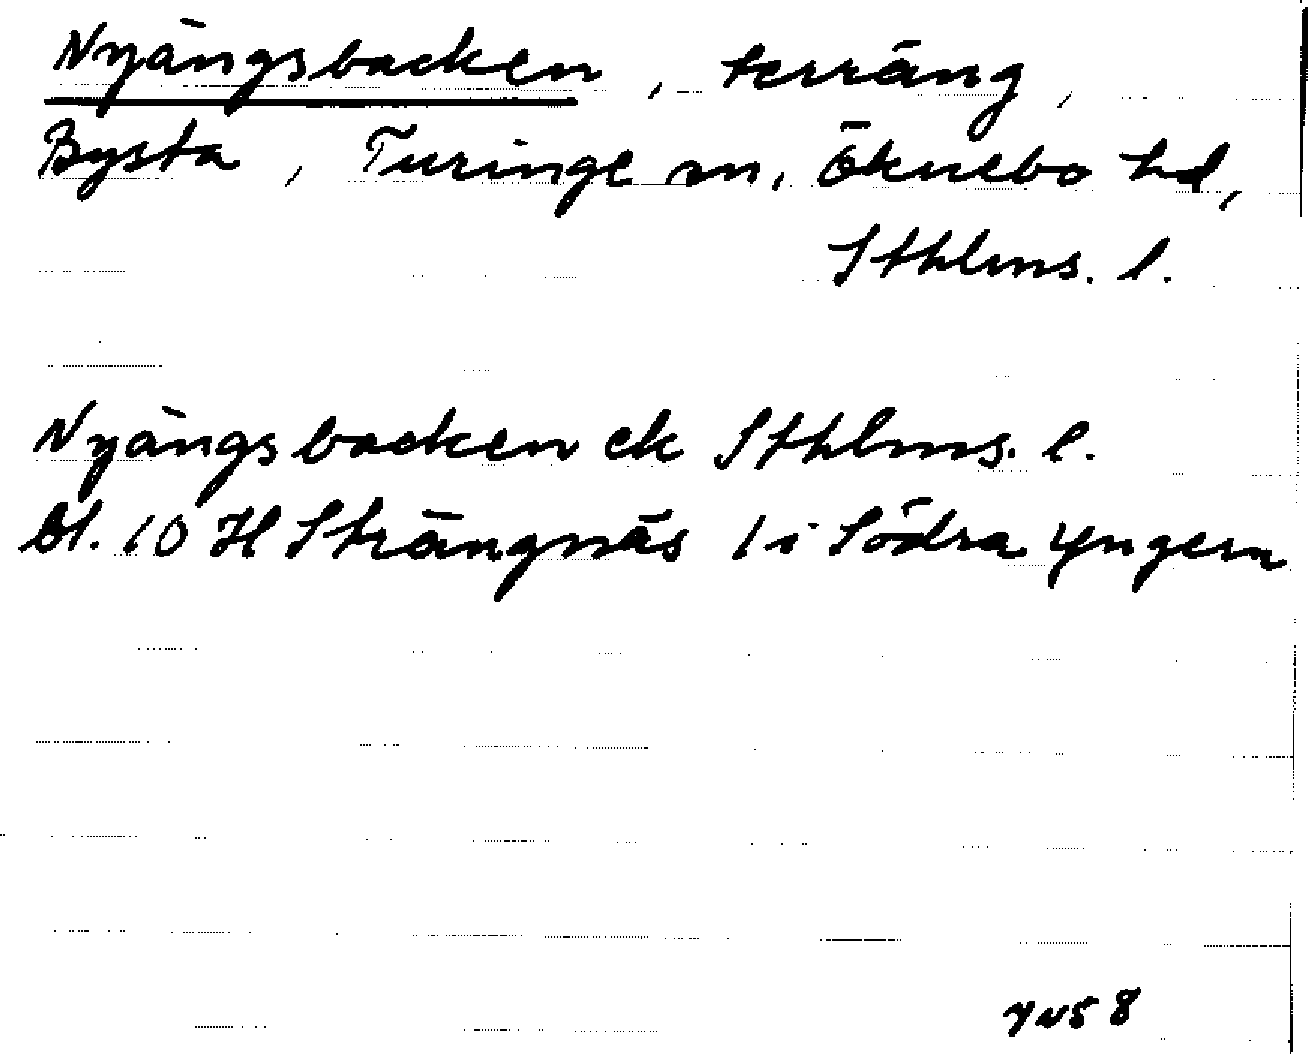 Nyängsbacken, terräng,
Bysta, Turinge sn, Öknebo hd,
Sthlms. l.
Nyängsbacken ek Sthlms. l.
bl. 10 H Strängnäs 1 i Södra Yngern